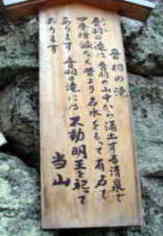 音羽の滝
音羽の滝は音羽の山中から湧出する清泉で
四季増減なく昔より名水をもって有名で
あります 音羽の滝には不動明王を祀って
あります
当山